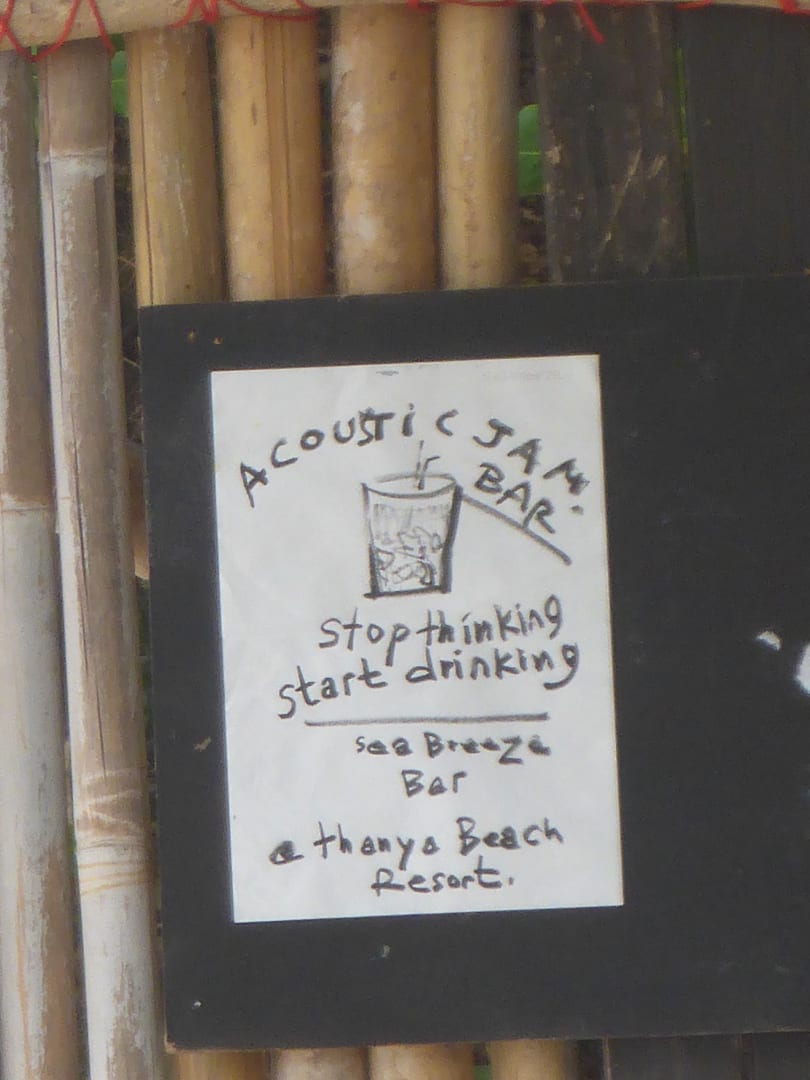 ACOUSTiC JAM.
BAR
stop thinking
start drinking
sea Breeze
Bar
@ thanya Beach
Resort.